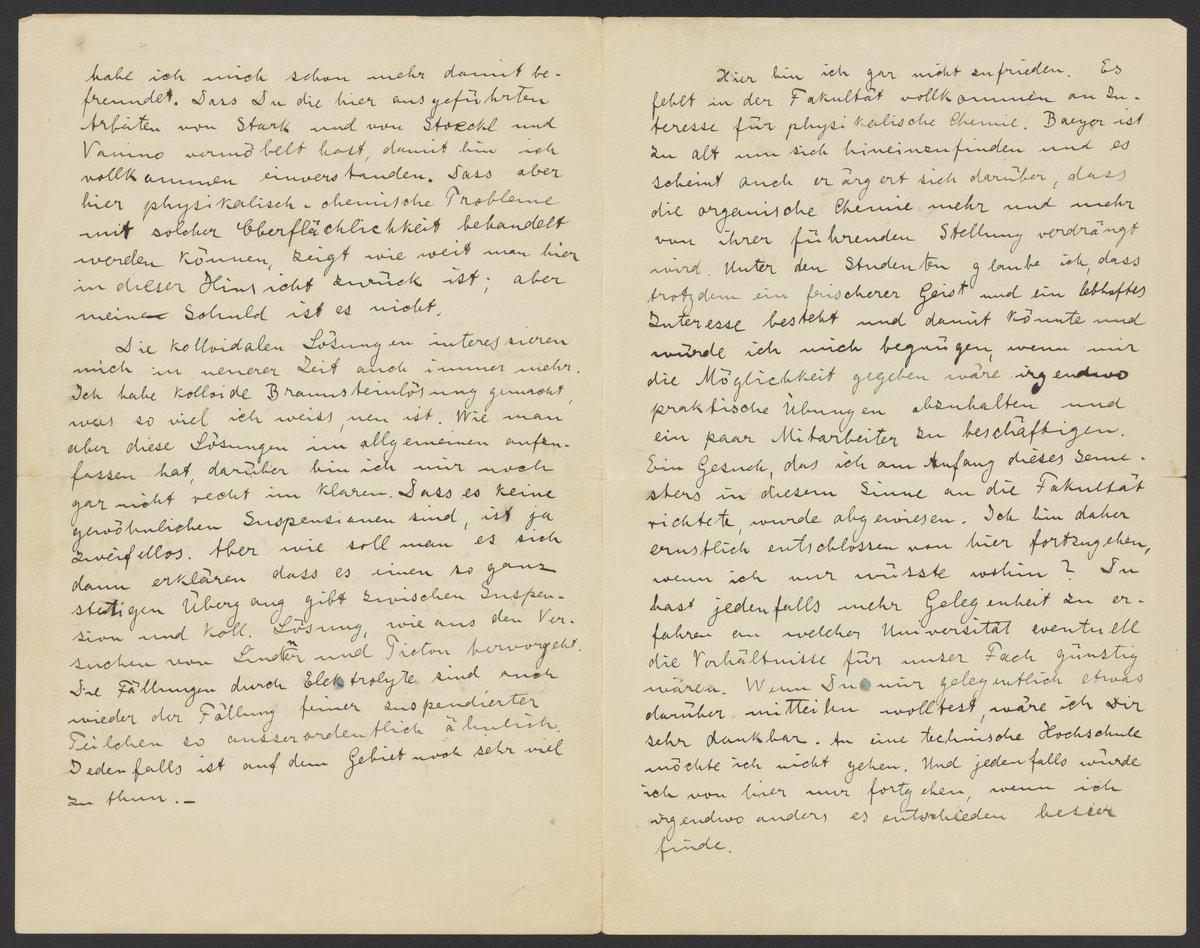 habe ich mich schon mehr damit be-
freundet. Dass Du die hier ausgeführten
Arbeiten von Stark und von Stoeckl und
Vanino vermöbelt hast, damit bin ich
vollkommen einverstanden. Dass aber
hier physikalisch-chemische Probleme
mit solcher Oberflächlichkeit behandelt
werden können, zeigt wie weit man hier
in dieser Hinsicht zurück ist; aber
meine Schuld ist es nicht.
Die kolloidalen Lösungen interessieren
mich in neuerer Zeit auch immer mehr.
Ich habe kolloide Braunsteinlösung gemacht,
was so viel ich weiss, neu ist. Wie man
aber diese Lösungen im allgemeinen aufzu-
fassen hat, darüber bin ich mir noch
gar nicht recht im klaren. Dass es keine
gewöhnlichen Suspensionen sind, ist ja
zweifellos. Aber wie soll man es sich
dann erklären dass es einen so ganz
stetigen Übergang gibt zwischen Suspen-
sion und koll. Lösung, wie aus den Ver-
suchen von Linder und Picton hervorgeht.
Die Fällungen durch Elektrolyte sind auch
wieder der Fällung feiner suspendierter
Teilchen so ausserordentlich ähnlich.
Jedenfalls ist auf dem Gebiet noch sehr viel
zu thun. –
Hier bin ich gar nicht zufrieden. Es
fehlt in der Fakultät vollkommen an In-
teresse für physikalische Chemie. Baeyer ist
zu alt um sich hineinzufinden und es
scheint auch er ärgert sich darüber, dass
die organische Chemie mehr und mehr
von ihrer führenden Stellung verdrängt
wird. Unter den Studenten glaube ich, dass
trotzdem ein frischerer Geist und ein lebhaftes
Interesse besteht und damit könnte und
würde ich mich begnügen, wenn mir
die Möglichkeit gegeben wäre irgendwo
praktische Übungen abzuhalten und
ein paar Mitarbeiter zu beschäftigen.
Ein Gesuch, das ich am Anfang dieses Seme-
sters in diesem Sinne an die Fakultät
richtete, wurde abgewiesen. Ich bin daher
ernstlich entschlossen von hier fortzugehen,
wenn ich nur wüsste wohin? Du
hast jedenfalls mehr Gelegenheit zu er-
fahren an welcher Universität eventuell
die Verhältnisse für unser Fach günstig
wären. Wenn Du mir gelegentlich etwas
darüber mitteilen wolltest, wäre ich Dir
sehr dankbar. An eine technische Hochschule
möchte ich nicht gehen. Und jedenfalls würde
ich von hier nur fortgehen, wenn ich
irgendwo anders es entschieden besser
finde.